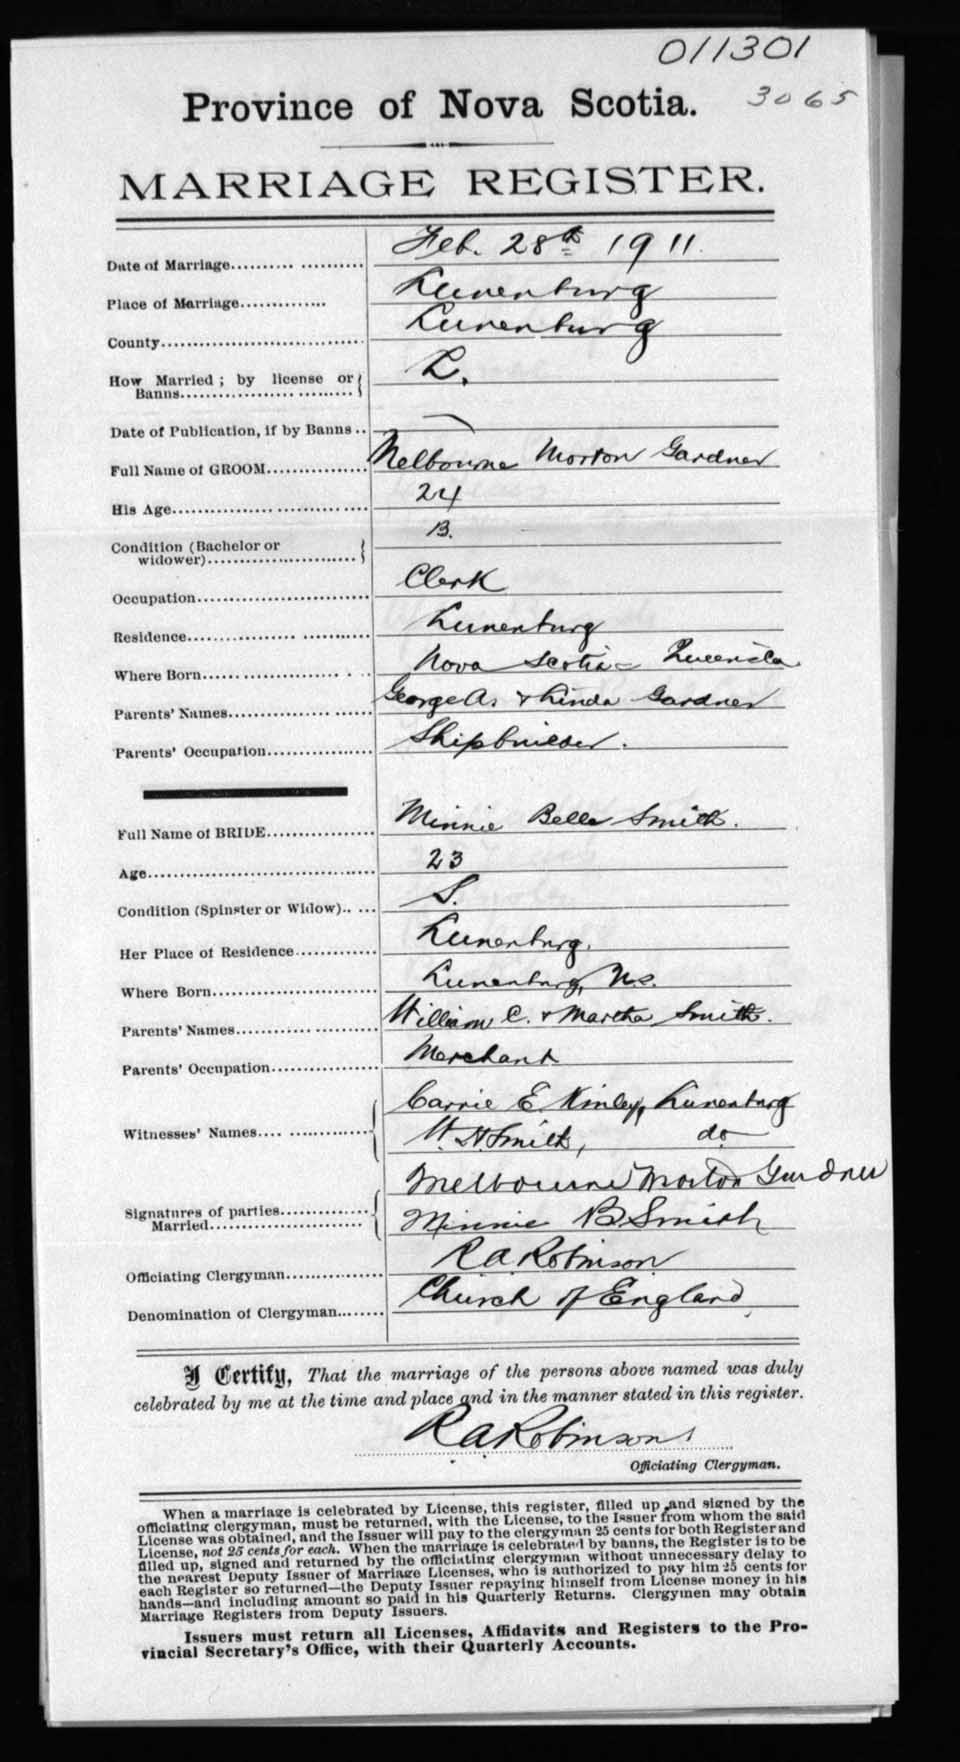 011301
Province of Nova Scotia. 3065
MARRIAGE REGISTER.
Date of Marriage.......... Feb. 28th 1911.
Place of Marriage.......... Lunenburg
County.......... Lunenburg
How Married ; by license or Banns.......... L.
Date of Publication, if by Banns .. —
Full Name of GROOM.......... Melbourne Morton Gardner
His Age.......... 24
Condition (Bachelor or widower).......... B.
Occupation.......... Clerk
Residence.......... Lunenburg
Where Born.......... Nova Scotia - Queens Co.
Parents' Names.......... George A. & Linda Gardner
Parents' Occupation.......... Shipbuilder.
Full Name of BRIDE.......... Minnie Belle Smith.
Age.......... 23
Condition (Spinster or Widow).. ... S.
Her Place of Residence.......... Lunenburg.
Where Born.......... Lunenburg, N.S.
Parents' Names.......... William C. & Martha Smith.
Parents' Occupation.......... Merchant
Witnesses' Names.......... Carrie E. Kinley, Lunenburg
W. N. Smith, do
Signatures of parties Married.......... Melbourne Morton Gardner
Minnie B. Smith
Officiating Clergyman.......... R A Robinson
Denomination of Clergyman.......... Church of England
I Certify, That the marriage of the persons above named was duly
celebrated by me at the time and place and in the manner stated in this register.
R A Robinson
Officiating Clergyman.
When a marriage is celebrated by License, this register, filled up and signed by the
officiating clergyman, must be returned, with the License, to the Issuer from whom the said
License was obtained, and the Issuer will pay to the clergyman 25 cents for both Register and
License, not 25 cents for each. When the marriage is celebrated by banns, the Register is to be
filled up, signed and returned by the officiating clergyman without unnecessary delay to
the nearest Deputy Issuer of Marriage Licenses, who is authorized to pay him 25 cents for
each Register so returned—the Deputy Issuer repaying himself from License money in his
hands—and including amount so paid in his Quarterly Returns. Clergymen may obtain
Marriage Registers from Deputy Issuers.
Issuers must return all Licenses, Affidavits and Registers to the Pro-
vincial Secretary's Office, with their Quarterly Accounts.